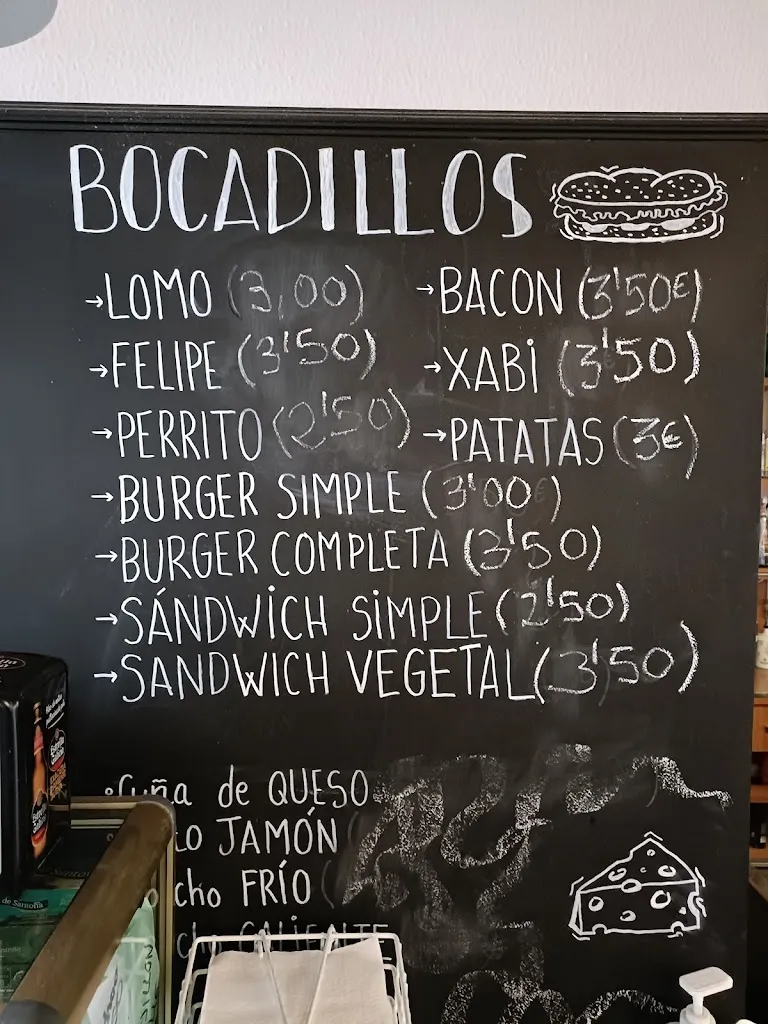 BOCADILLOS
→LOMO (3,00) →BACON (3'50€)
→FELIPE (3'50) →XABi (3'50)
→PERRITO (2'50) →PATATAS (3€)
→BURGER SIMPLE (3'00€)
→BURGER COMPLETA (3'50)
→SÁNDWiCH SiMPLE (2'50)
→SANDWICH VEGETAL (3'50)
Cuña de QUESO
JAMÓN
FRÍO
CALIENTE
de Santoña